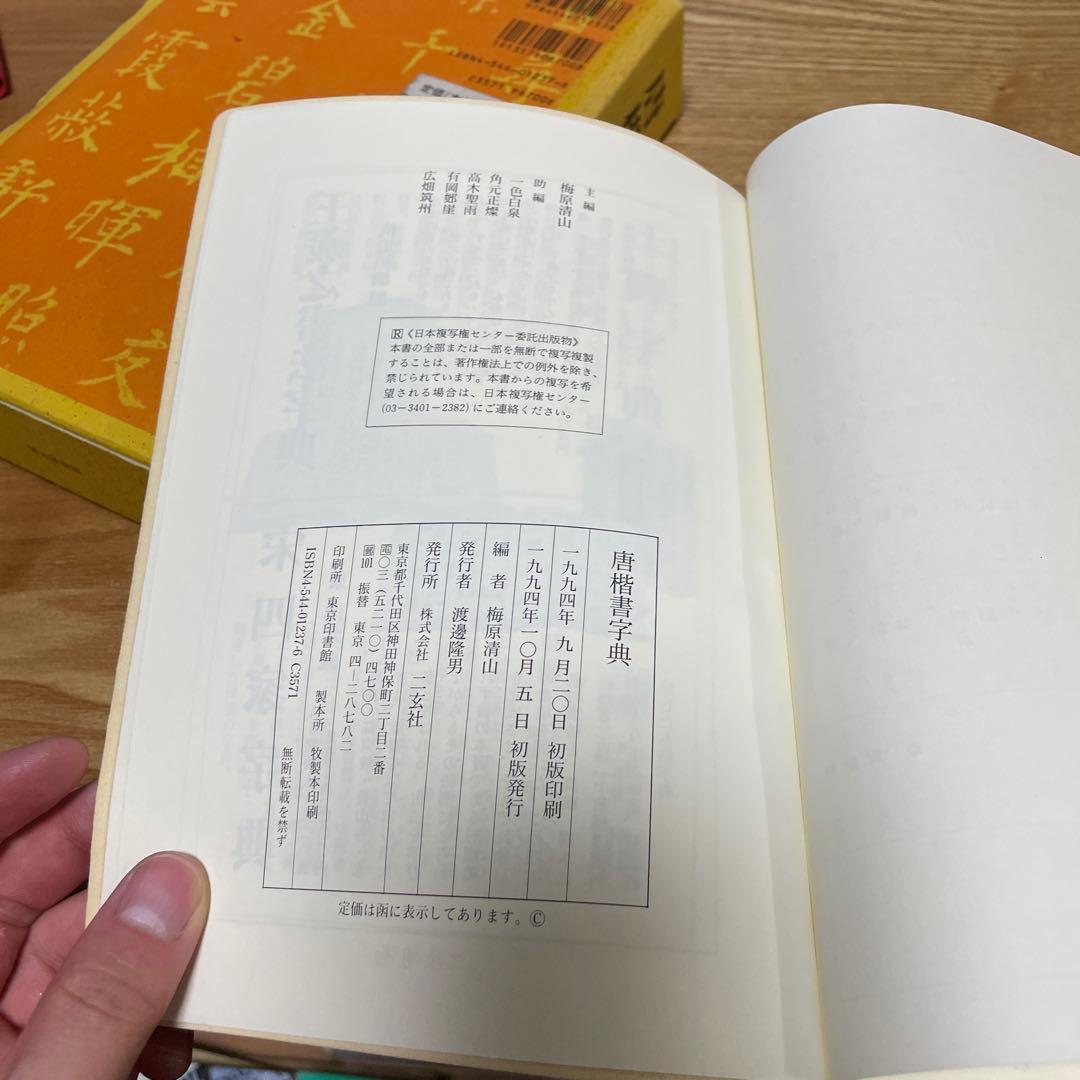 主編
梅原清山
助編
一色白泉
角元正燦
高木聖雨
有岡郷崖
広畑筑州
R《日本複写権センター委託出版物》
本書の全部または一部を無断で複写複製
することは、著作権法上での例外を除き、
禁じられています。本書からの複写を希
望される場合は、日本複写権センター
(03-3401-2382)にご連絡ください。
唐楷書字典
一九九四年 九月二〇日 初版印刷
一九九四年一〇月 五 日 初版発行
編者 梅原清山
発行者 渡邊隆男
発行所 株式会社 二玄社
東京都千代田区神田神保町二丁目二番
電〇三(五二一〇)四七〇〇
郵101 振替 東京 四-二八七八二
印刷所 東京印書館 製本所 牧製本印刷
ISBN4-544-01237-6 C3571 無断転載を禁ず
定価は函に表示してあります。©
金
碧
霞
薇
相
暉
照
定価